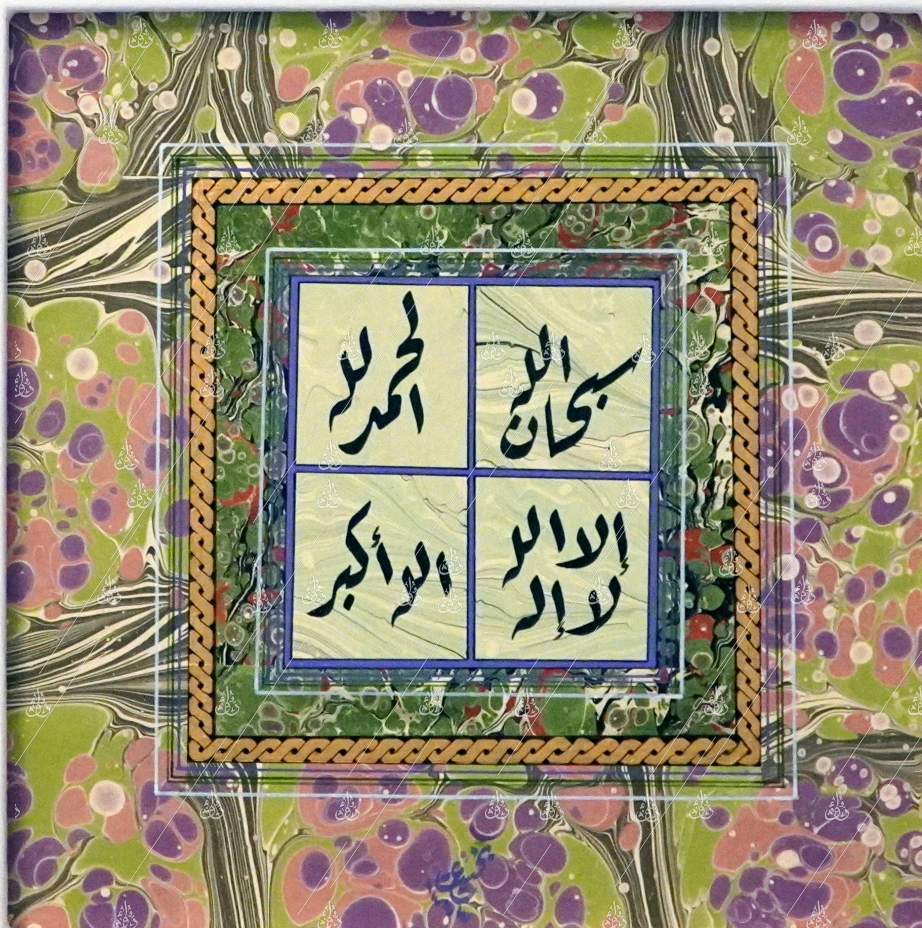 سبحان الله
الحمد لله
لا إله
إلا الله
الله أكبر